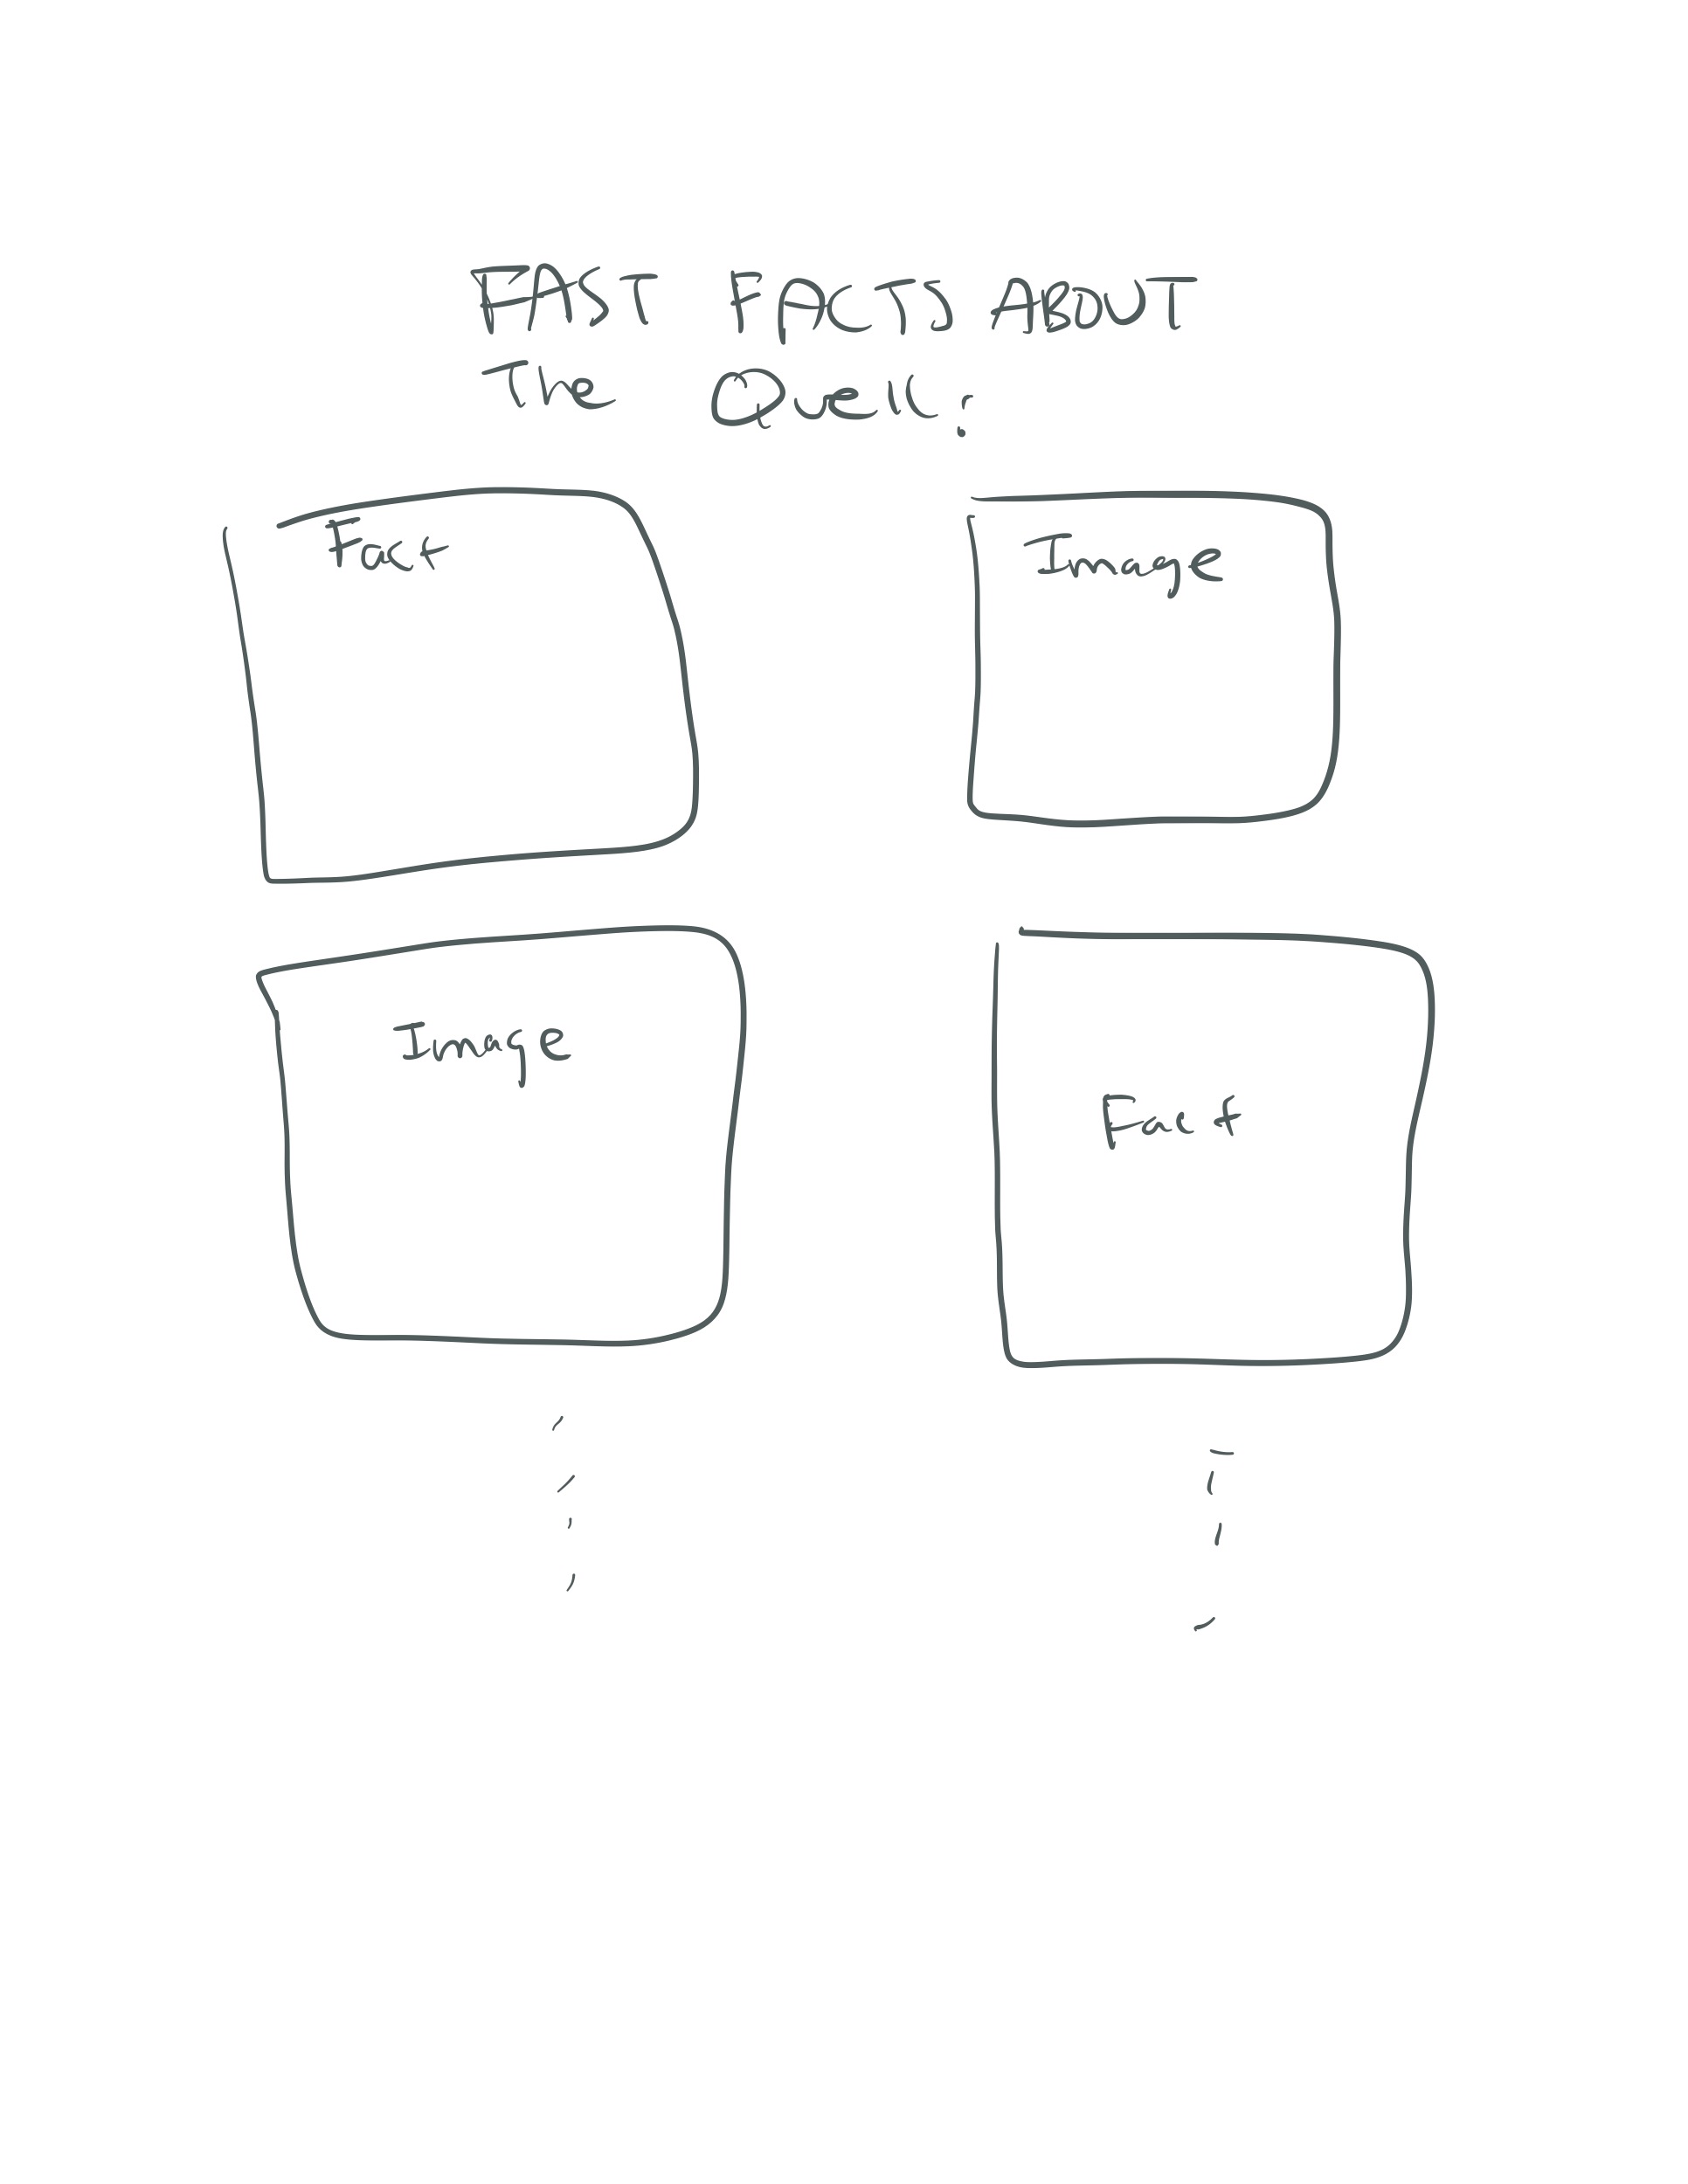 FAST FACTS ABOUT
The Quell:
Fact
Image
Image
Fact